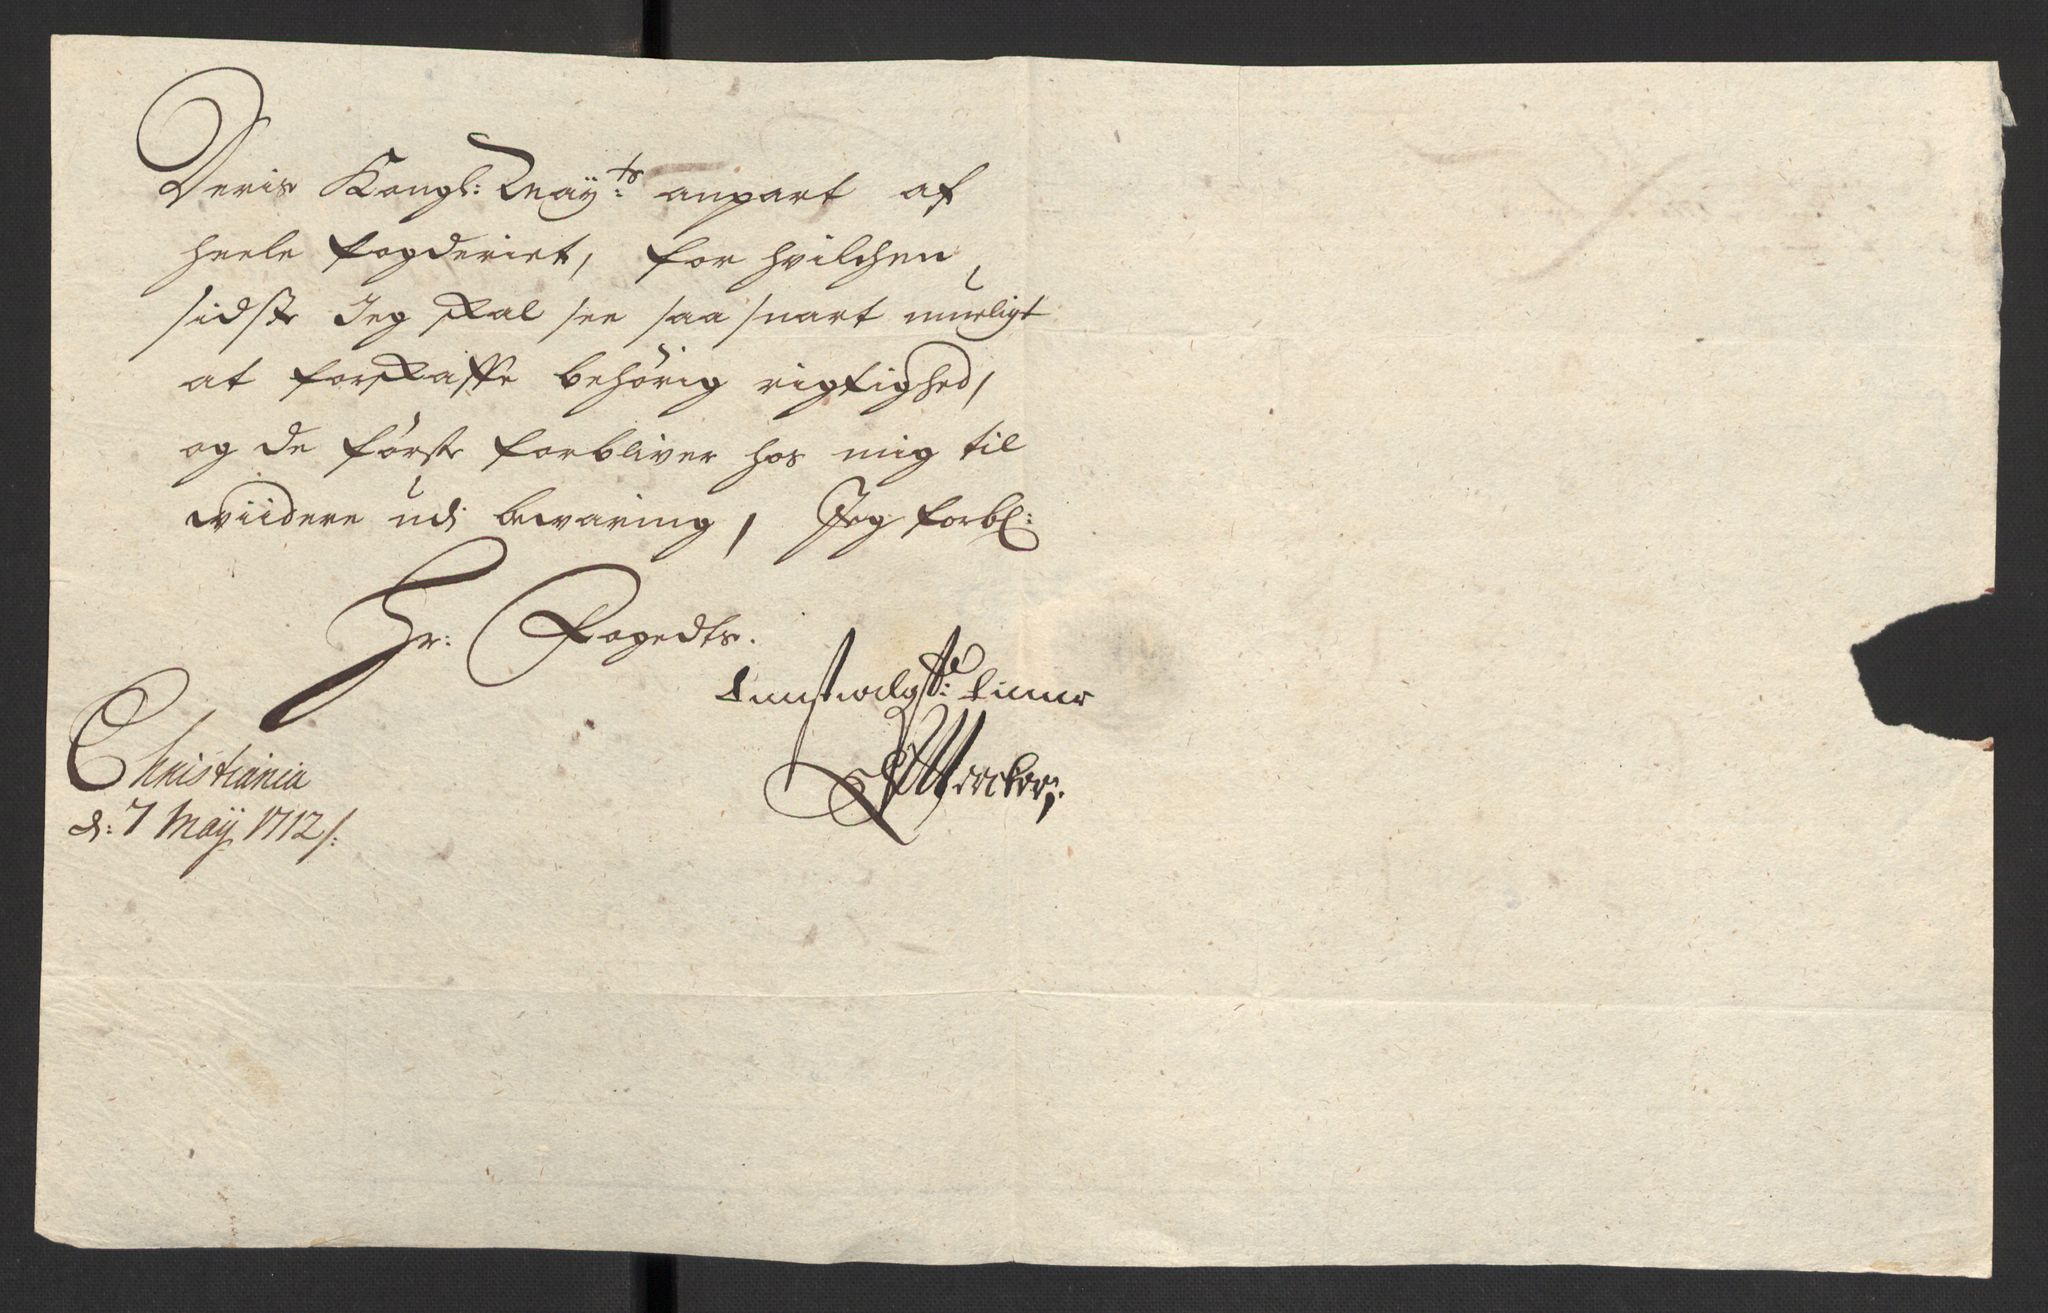 Deris Kongl: Maÿ:ts anpart af
heele fogderiet, for hvilchen
sidste Jeg skal see saa snart mueligt
at forskaffe behörig rigtighed,
og de förste forbliver hos mig til
viidere udi bewaring, Jeg forbl:
Hr: Fogedts.
tienstvilgste: tiener
Christiania
d: 7 Maÿ 1712/: